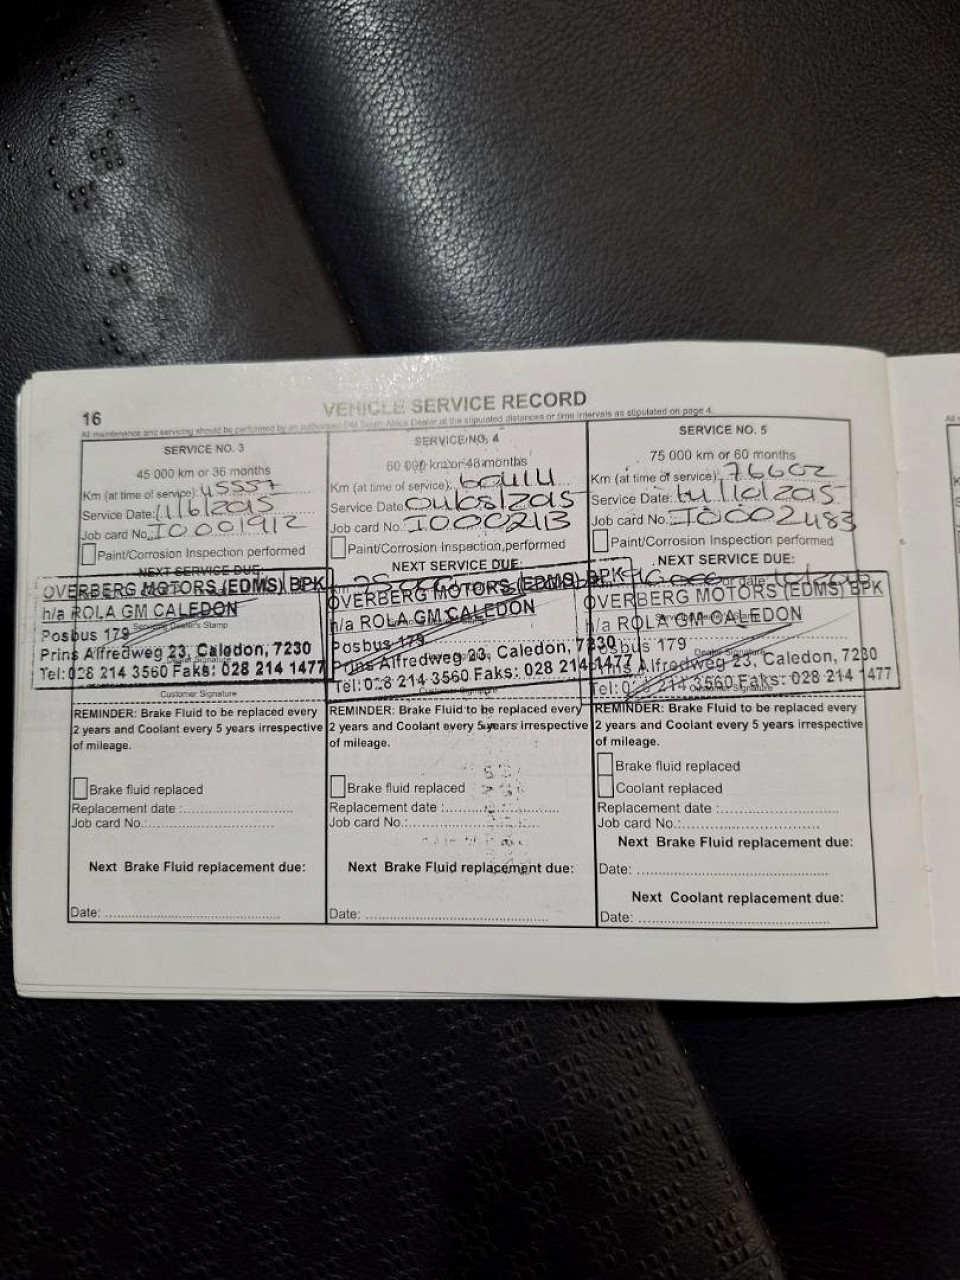 16
VEHICLE SERVICE RECORD
All maintenance and servicing should be performed by an authorised GM South Africa Dealer at the stipulated distances or time intervals as stipulated on page 4.
SERVICE NO. 3
45 000 km or 36 months
Km (at time of service): 45557
Service Date: 11/6/2015
Job card No.: I0001912
Paint/Corrosion Inspection performed
NEXT SERVICE DUE:
OVERBERG MOTORS (EDMS) BPK
h/a ROLA GM CALEDON
Posbus 179
Servicing Dealer's Stamp
Prins Alfredweg 23, Caledon, 7230
Tel: 028 214 3560 Faks: 028 214 1477
Customer Signature
REMINDER: Brake Fluid to be replaced every
2 years and Coolant every 5 years irrespective
of mileage.
Brake fluid replaced
Replacement date :
Job card No.:
Next Brake Fluid replacement due:
Date:
SERVICE NO. 4
60 000 km or 48 months
Km (at time of service):
Service Date:
Job card No.: I0002113
Paint/Corrosion Inspection performed
NEXT SERVICE DUE:
OVERBERG MOTORS (EDMS) BPK
h/a ROLA GM CALEDON
Posbus 179
Prins Alfredweg 23, Caledon, 7230
Tel: 028 214 1477
Customer Signature
REMINDER: Brake Fluid to be replaced every
2 years and Coolant every 5 years irrespective
of mileage.
Brake fluid replaced
Replacement date :
Job card No.:
Next Brake Fluid replacement due:
Date:
SERVICE NO. 5
75 000 km or 60 months
Km (at time of service): 76602
Service Date: /10/2015
Job card No.: I0002483
Paint/Corrosion Inspection performed
NEXT SERVICE DUE:
or date:
OVERBERG MOTORS (EDMS) BPK
h/a ROLA GM CALEDON
Posbus 179
Alfredweg 23, Caledon, 7230
Tel: 214 3560 Faks: 028 214 1477
REMINDER: Brake Fluid to be replaced every
2 years and Coolant every 5 years irrespective
of mileage.
Brake fluid replaced
Coolant replaced
Replacement date :
Job card No.:
Next Brake Fluid replacement due:
Date:
Next Coolant replacement due:
Date: